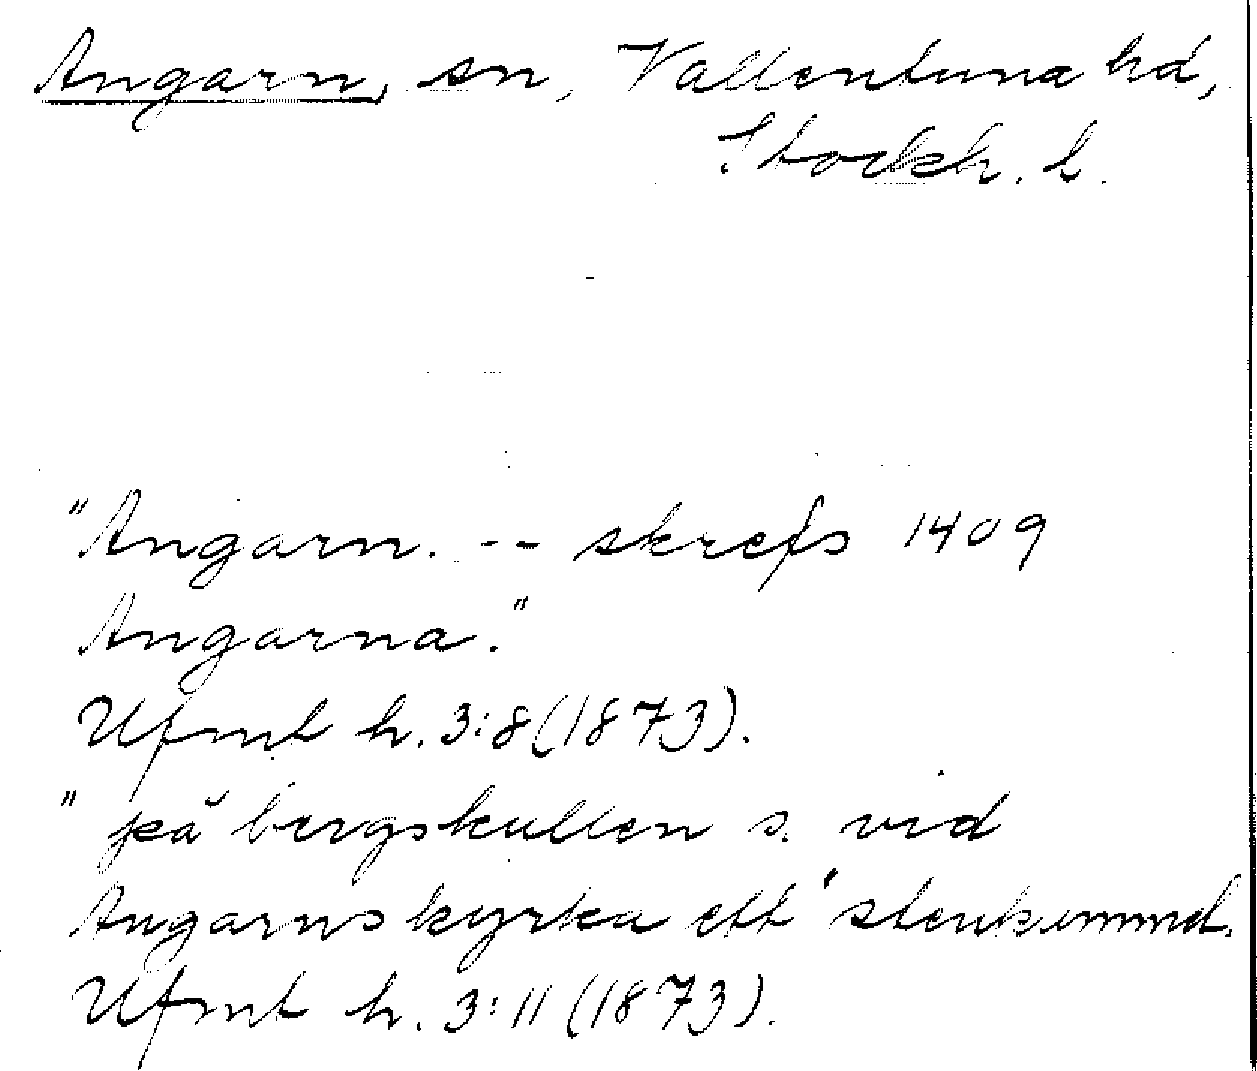 Angarn, sn, Vallentuna hd,
Stockh. l.
"Angarn. -- skrefs 1409
Angarna."
Ufmt h. 3:8 (1873).
" på bergskullen s. vid
Angarns kyrka ett "
Ufmt h. 3:11 (1873).